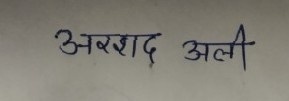 अरशद अली